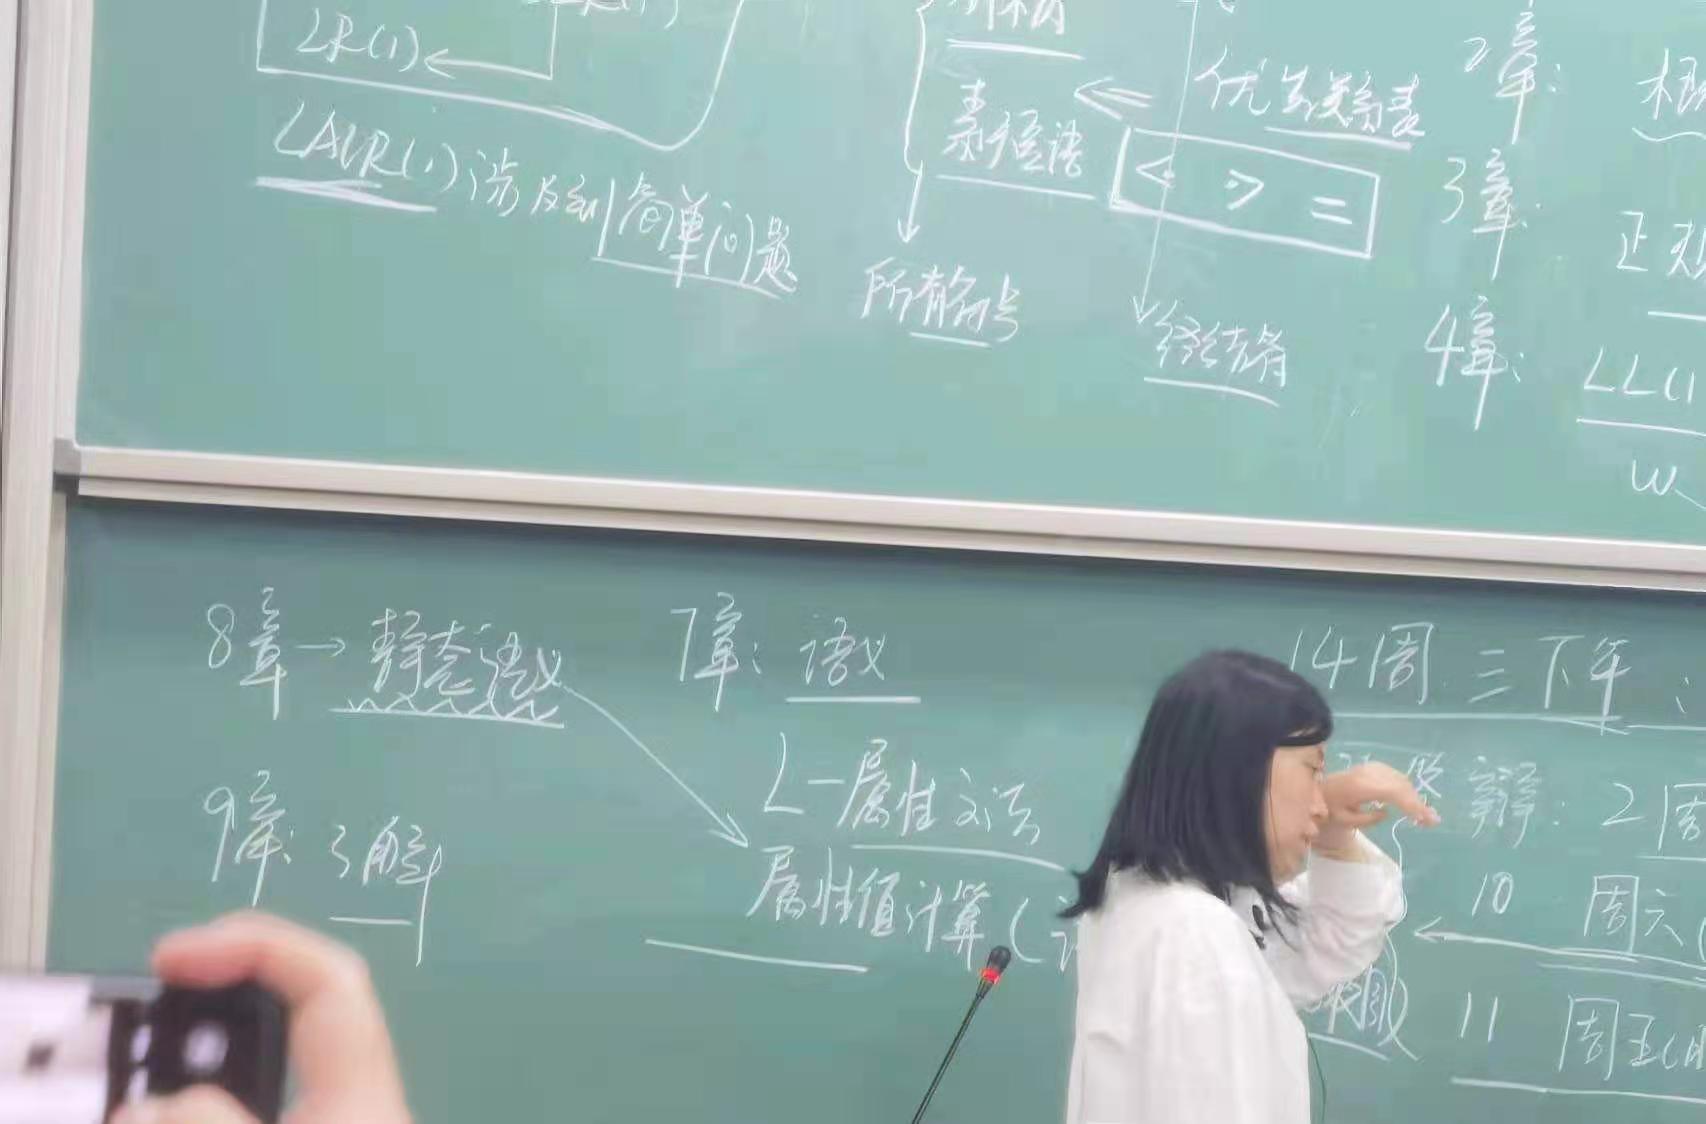 LR(1)
LALR(1) 涉及到简单问题
素短语
优先关系表
< > =
所有符号
终结符
2章:
3章: 正规
4章: LL(1
8章→静态语义
9章: 了解
7章: 语义
L-属性文法
属性值计算(
14周 三下午:
辩: 2周
10 周六(
11 周五(